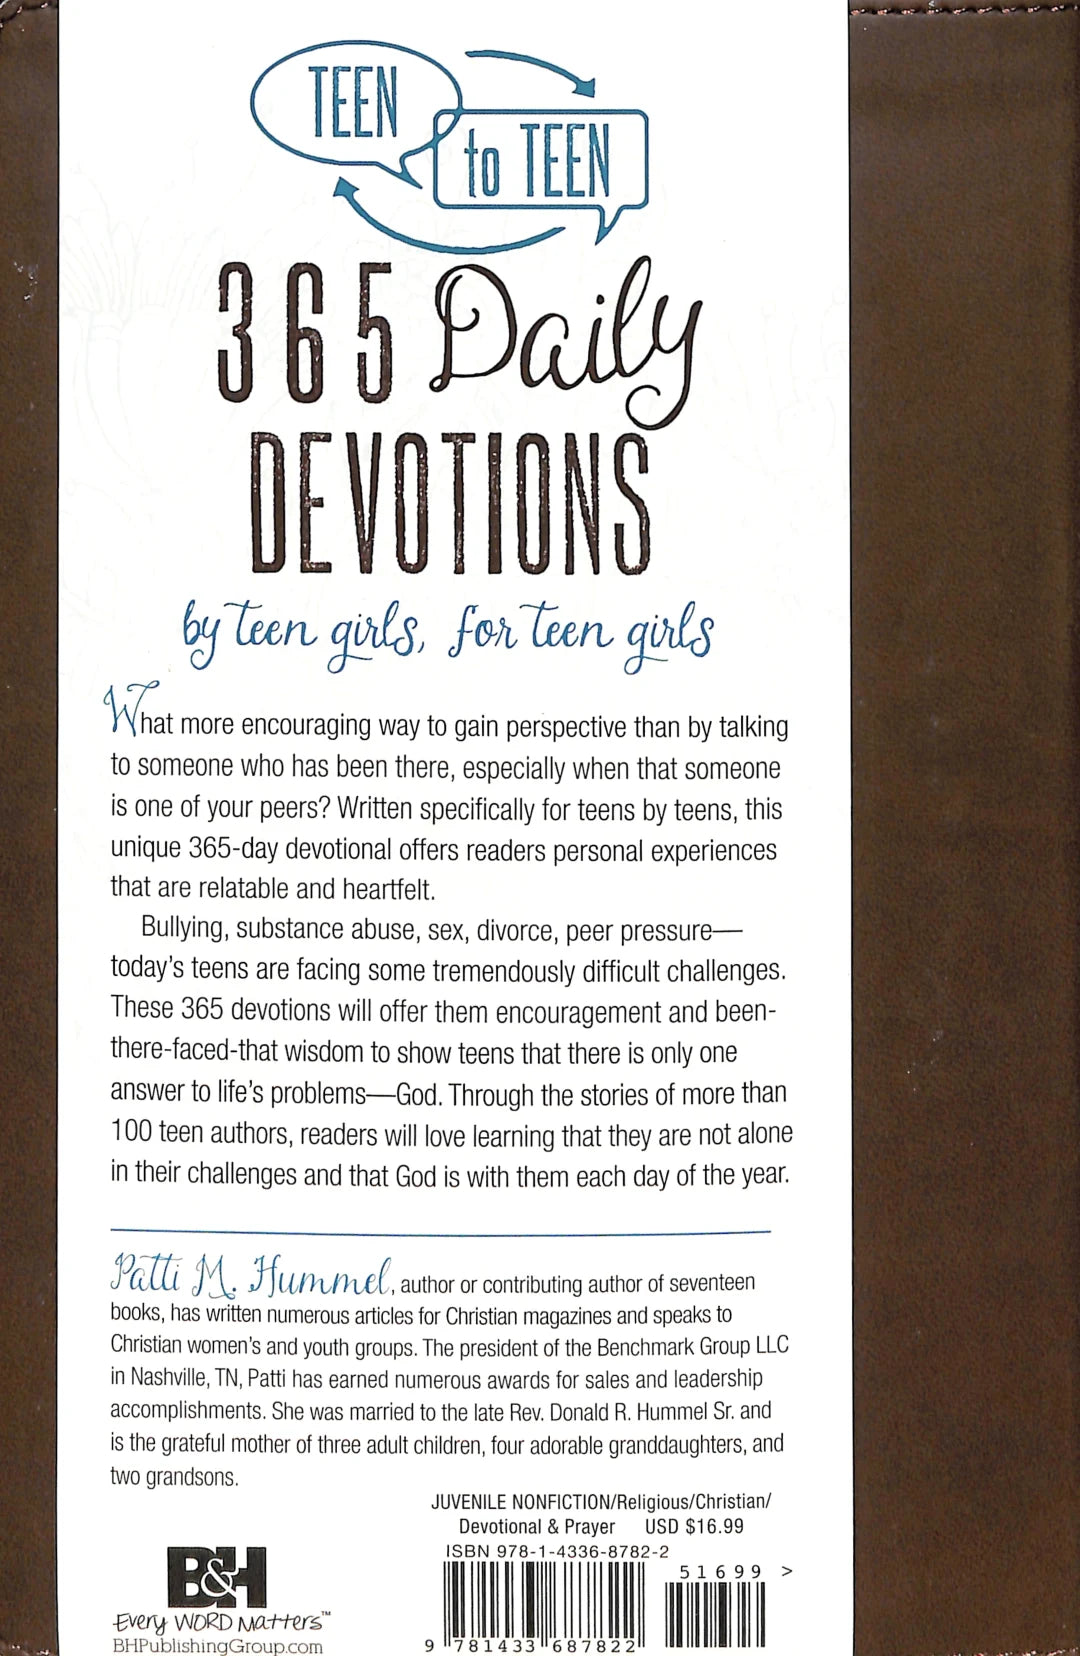 TEEN
to TEEN
365 Daily
DEVOTIONS
by teen girls, for teen girls
What more encouraging way to gain perspective than by talking
to someone who has been there, especially when that someone
is one of your peers? Written specifically for teens by teens, this
unique 365-day devotional offers readers personal experiences
that are relatable and heartfelt.
Bullying, substance abuse, sex, divorce, peer pressure—
today's teens are facing some tremendously difficult challenges.
These 365 devotions will offer them encouragement and been-
there-faced-that wisdom to show teens that there is only one
answer to life's problems—God. Through the stories of more than
100 teen authors, readers will love learning that they are not alone
in their challenges and that God is with them each day of the year.
Patti M. Hummel, author or contributing author of seventeen
books, has written numerous articles for Christian magazines and speaks to
Christian women's and youth groups. The president of the Benchmark Group LLC
in Nashville, TN, Patti has earned numerous awards for sales and leadership
accomplishments. She was married to the late Rev. Donald R. Hummel Sr. and
is the grateful mother of three adult children, four adorable granddaughters, and
two grandsons.
JUVENILE NONFICTION/Religious/Christian/
Devotional & Prayer USD $16.99
ISBN 978-1-4336-8782-2
51699 >
9 781433 687822
B&H
Every WORD Matters™
BHPublishingGroup.com